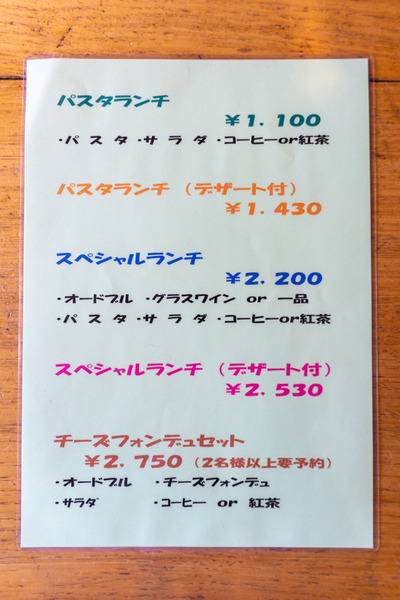 パスタランチ
￥1.100
・パスタ・サラダ・コーヒーor紅茶
パスタランチ（デザート付）
￥1.430
スペシャルランチ
￥2.200
・オードブル ・グラスワイン or 一品
・パスタ・サラダ・コーヒーor紅茶
スペシャルランチ（デザート付）
￥2.530
チーズフォンデュセット
￥2.750（2名様以上要予約）
・オードブル ・チーズフォンデュ
・サラダ ・コーヒー or 紅茶